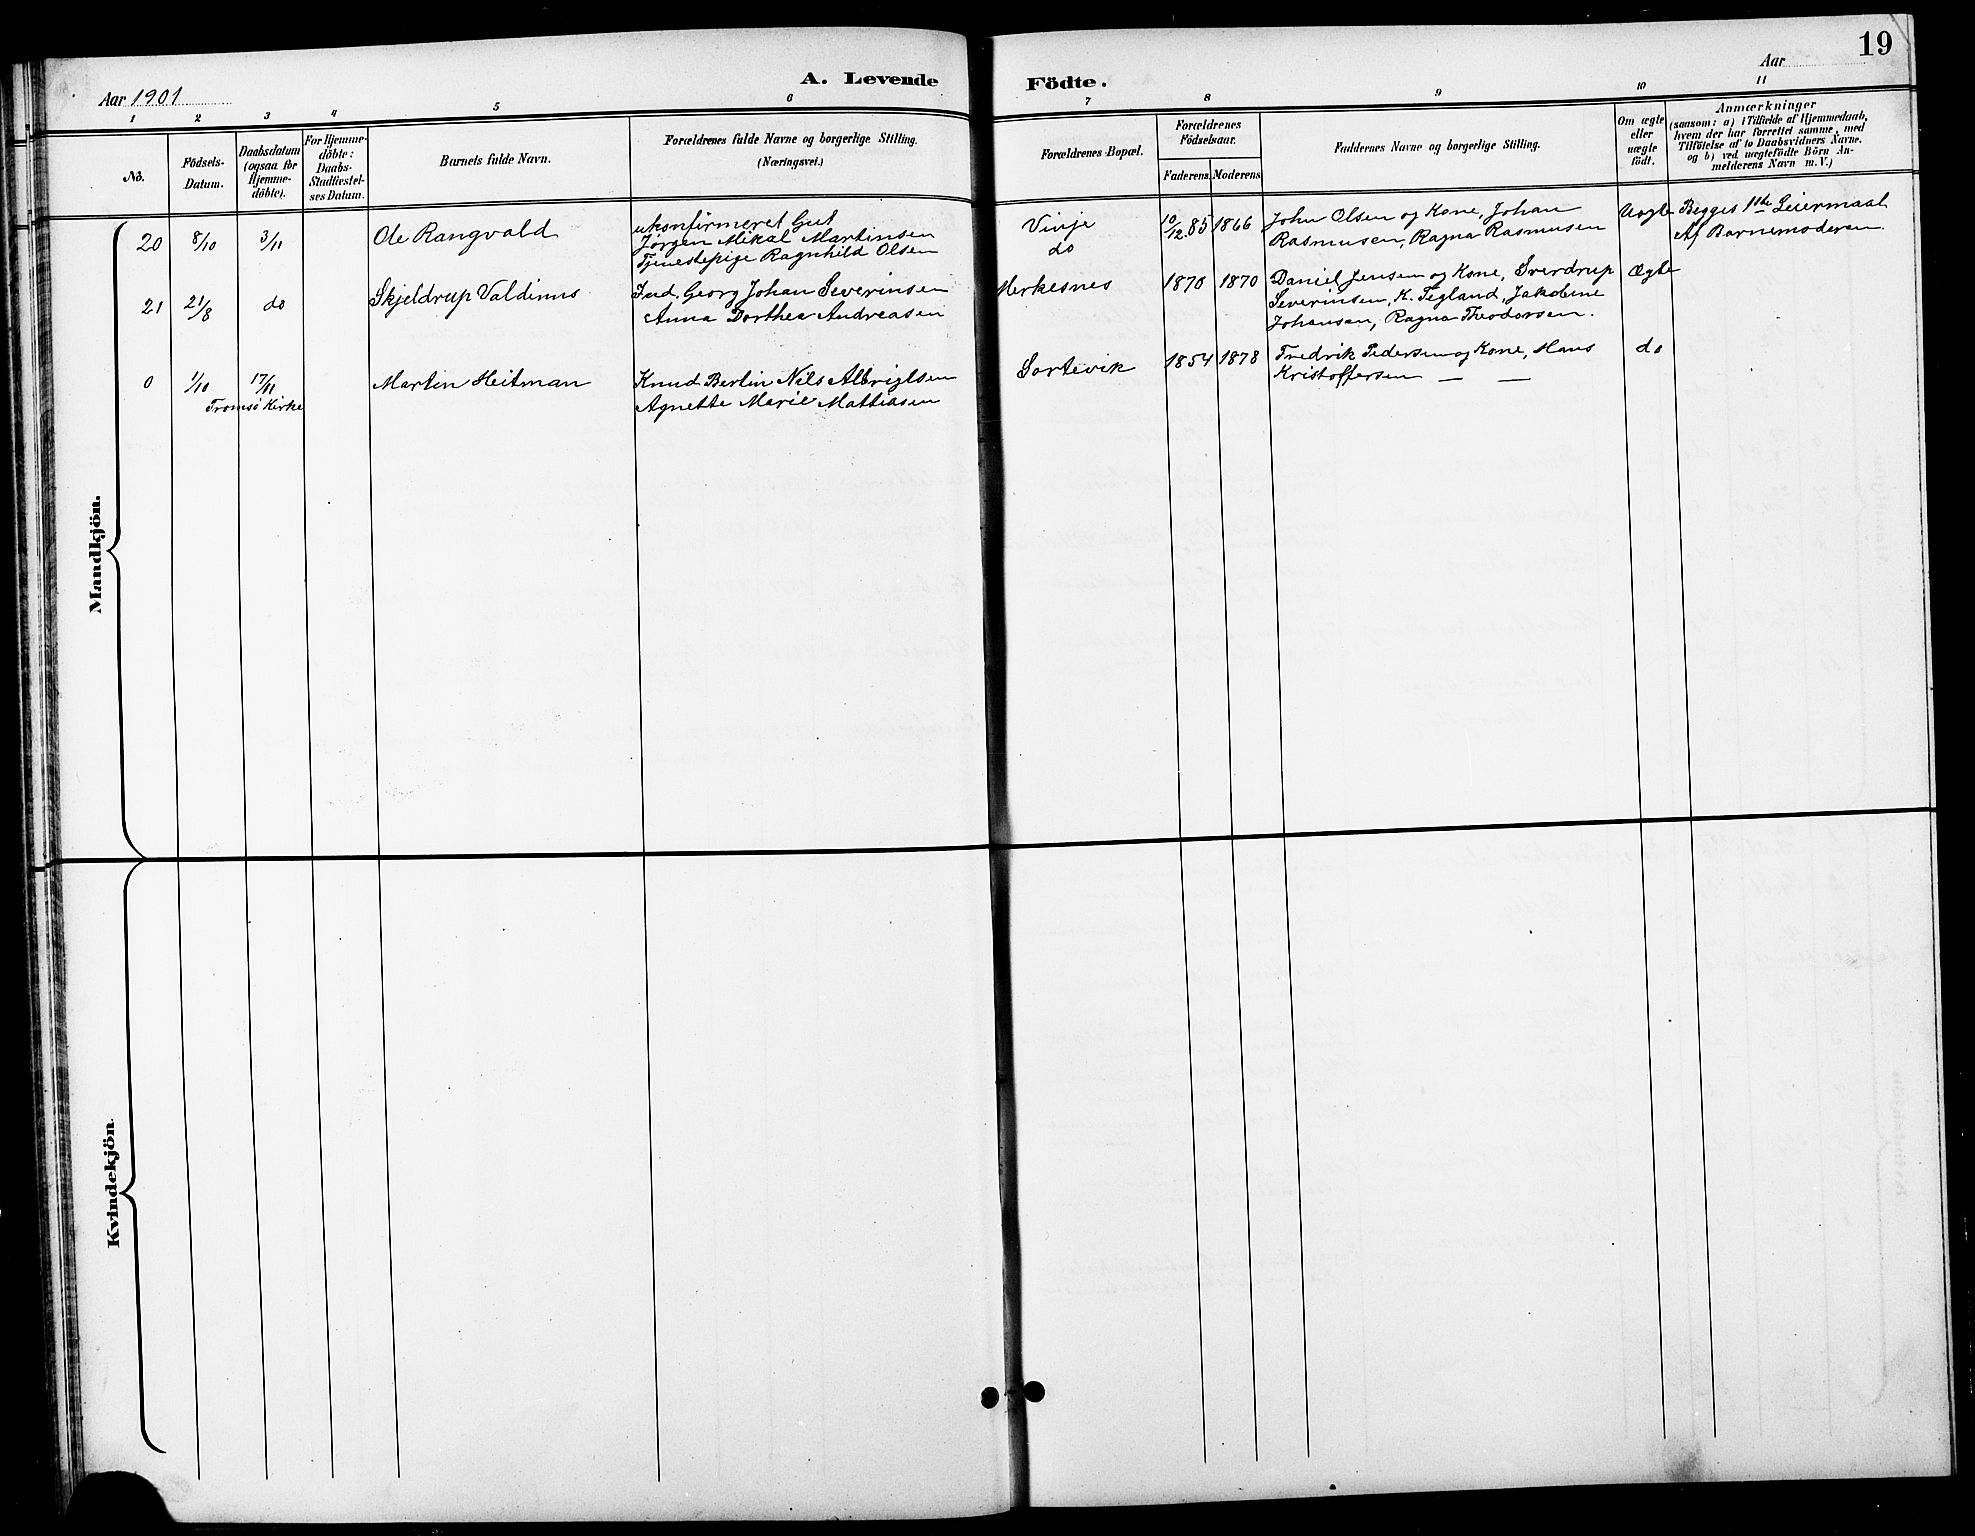 19
A. Levende Födte.
Aar 1901
Aar
1 2 3 4 5 6 7 8 9 10 11
No.
Födsels-
Datum.
Daabsdatum
(ogsaa for
Hjemme-
döbte).
For Hjemme-
döbte:
Daabs-
Stadfæstel-
ses Datum.
Barnets fulde Navn.
Forældrenes fulde Navne og borgerlige Stilling.
(Næringsvei.)
Forældrenes Bopæl.
Forældrenes
Födselsaar.
Faderens. Moderens.
Faddernes Navne og borgerlige Stilling.
Om ægte
eller
uægte
födt.
Anmærkninger
(saasom: a) i Tilfælde af Hjemmedaab,
hvem der har forrettet samme, med
Tilföielse af to Daabsvidners Navne.
og b) ved uægtefödte Börn An-
melderens Navn m. V.)
Mandkjön.
20 8/10 3/11 Ole Rangvald
ukonfirmeret Gut
Jørgen Mikal Martinsen
Tjenestepige Ragnhild Olsen
Vinje
do
10/12 85 1866
John Olsen og Kone, Johan
Rasmussen, Ragna Rasmusen
Uægte
Begges 1ste Leiermaal
Af Barnemoderen.
21 21/8 do Skjeldrup Valdinus
Ind. Georg Johan Severinsen
Anna Dorthea Andreasen
Merkesnes 1870 1870
Daniel Jensen og Kone, Sverdrup
Severinsen, K. Tegland, Jakobine
Johansen, Ragna Theodorsen.
Ægte
0 1/10 17/11 Martin Heitman
Tromsö Kirke
Knud Berlin Nils Albrigtsen
Agnette Marie Mattiasen
Sortevik 1854 1878
Fredrik Pedersen og Kone, Hans
Kristoffersen — —
do
Kvindekjön.